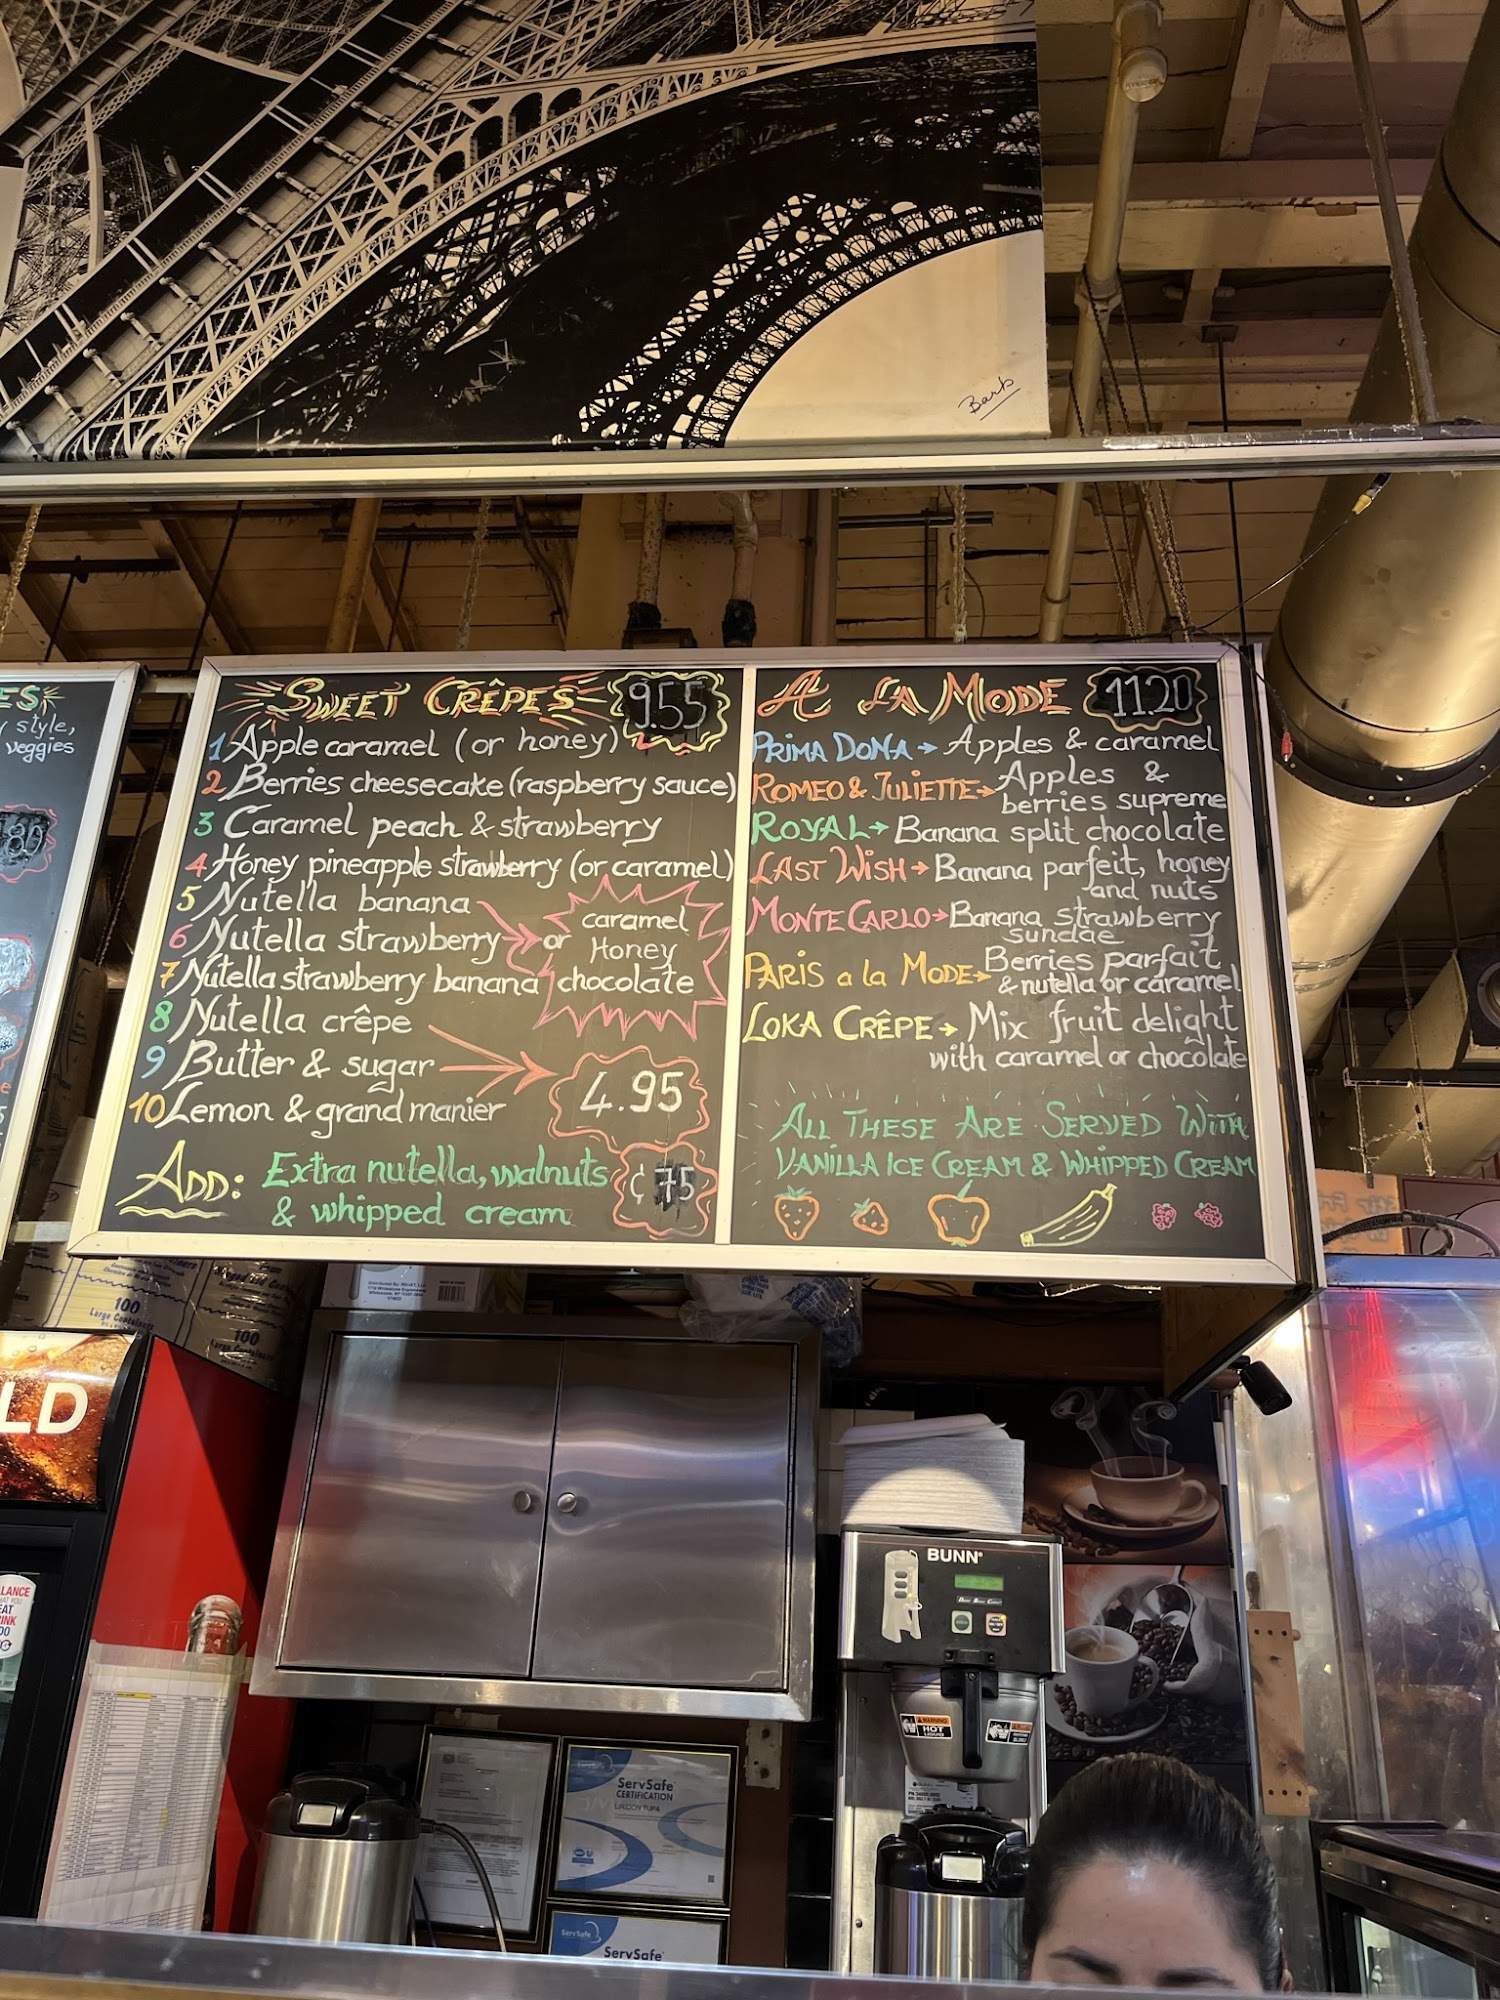 Barts
ES
style,
veggies
80
SWEET CRÊPES 9.55
1 Apple caramel (or honey)
2 Berries cheesecake (raspberry sauce)
3 Caramel peach & strawberry
4 Honey pineapple strawberry (or caramel)
5 Nutella banana
6 Nutella strawberry
7 Nutella strawberry banana
or caramel
Honey
chocolate
8 Nutella crêpe
9 Butter & sugar
10 Lemon & grand manier
4.95
ADD: Extra nutella, walnuts
& whipped cream
¢ 75
A LA MODE 11.20
PRIMA DONA → Apples & caramel
ROMEO & JULIETTE → Apples &
berries supreme
ROYAL → Banana split chocolate
LAST WISH → Banana parfeit, honey
and nuts
MONTE CARLO → Banana strawberry
sundae
PARIS a la MODE → Berries parfait
& nutella or caramel
LOKA CRÊPE → Mix fruit delight
with caramel or chocolate
ALL THESE ARE SERVED WITH
VANILLA ICE CREAM & WHIPPED CREAM
100
Large Containers
100
LD
LANCE
EAT
BUNN
WARNING
HOT
LIQUID
ServSafe
ServSafe
CERTIFICATION
ServSafe
ServSafe